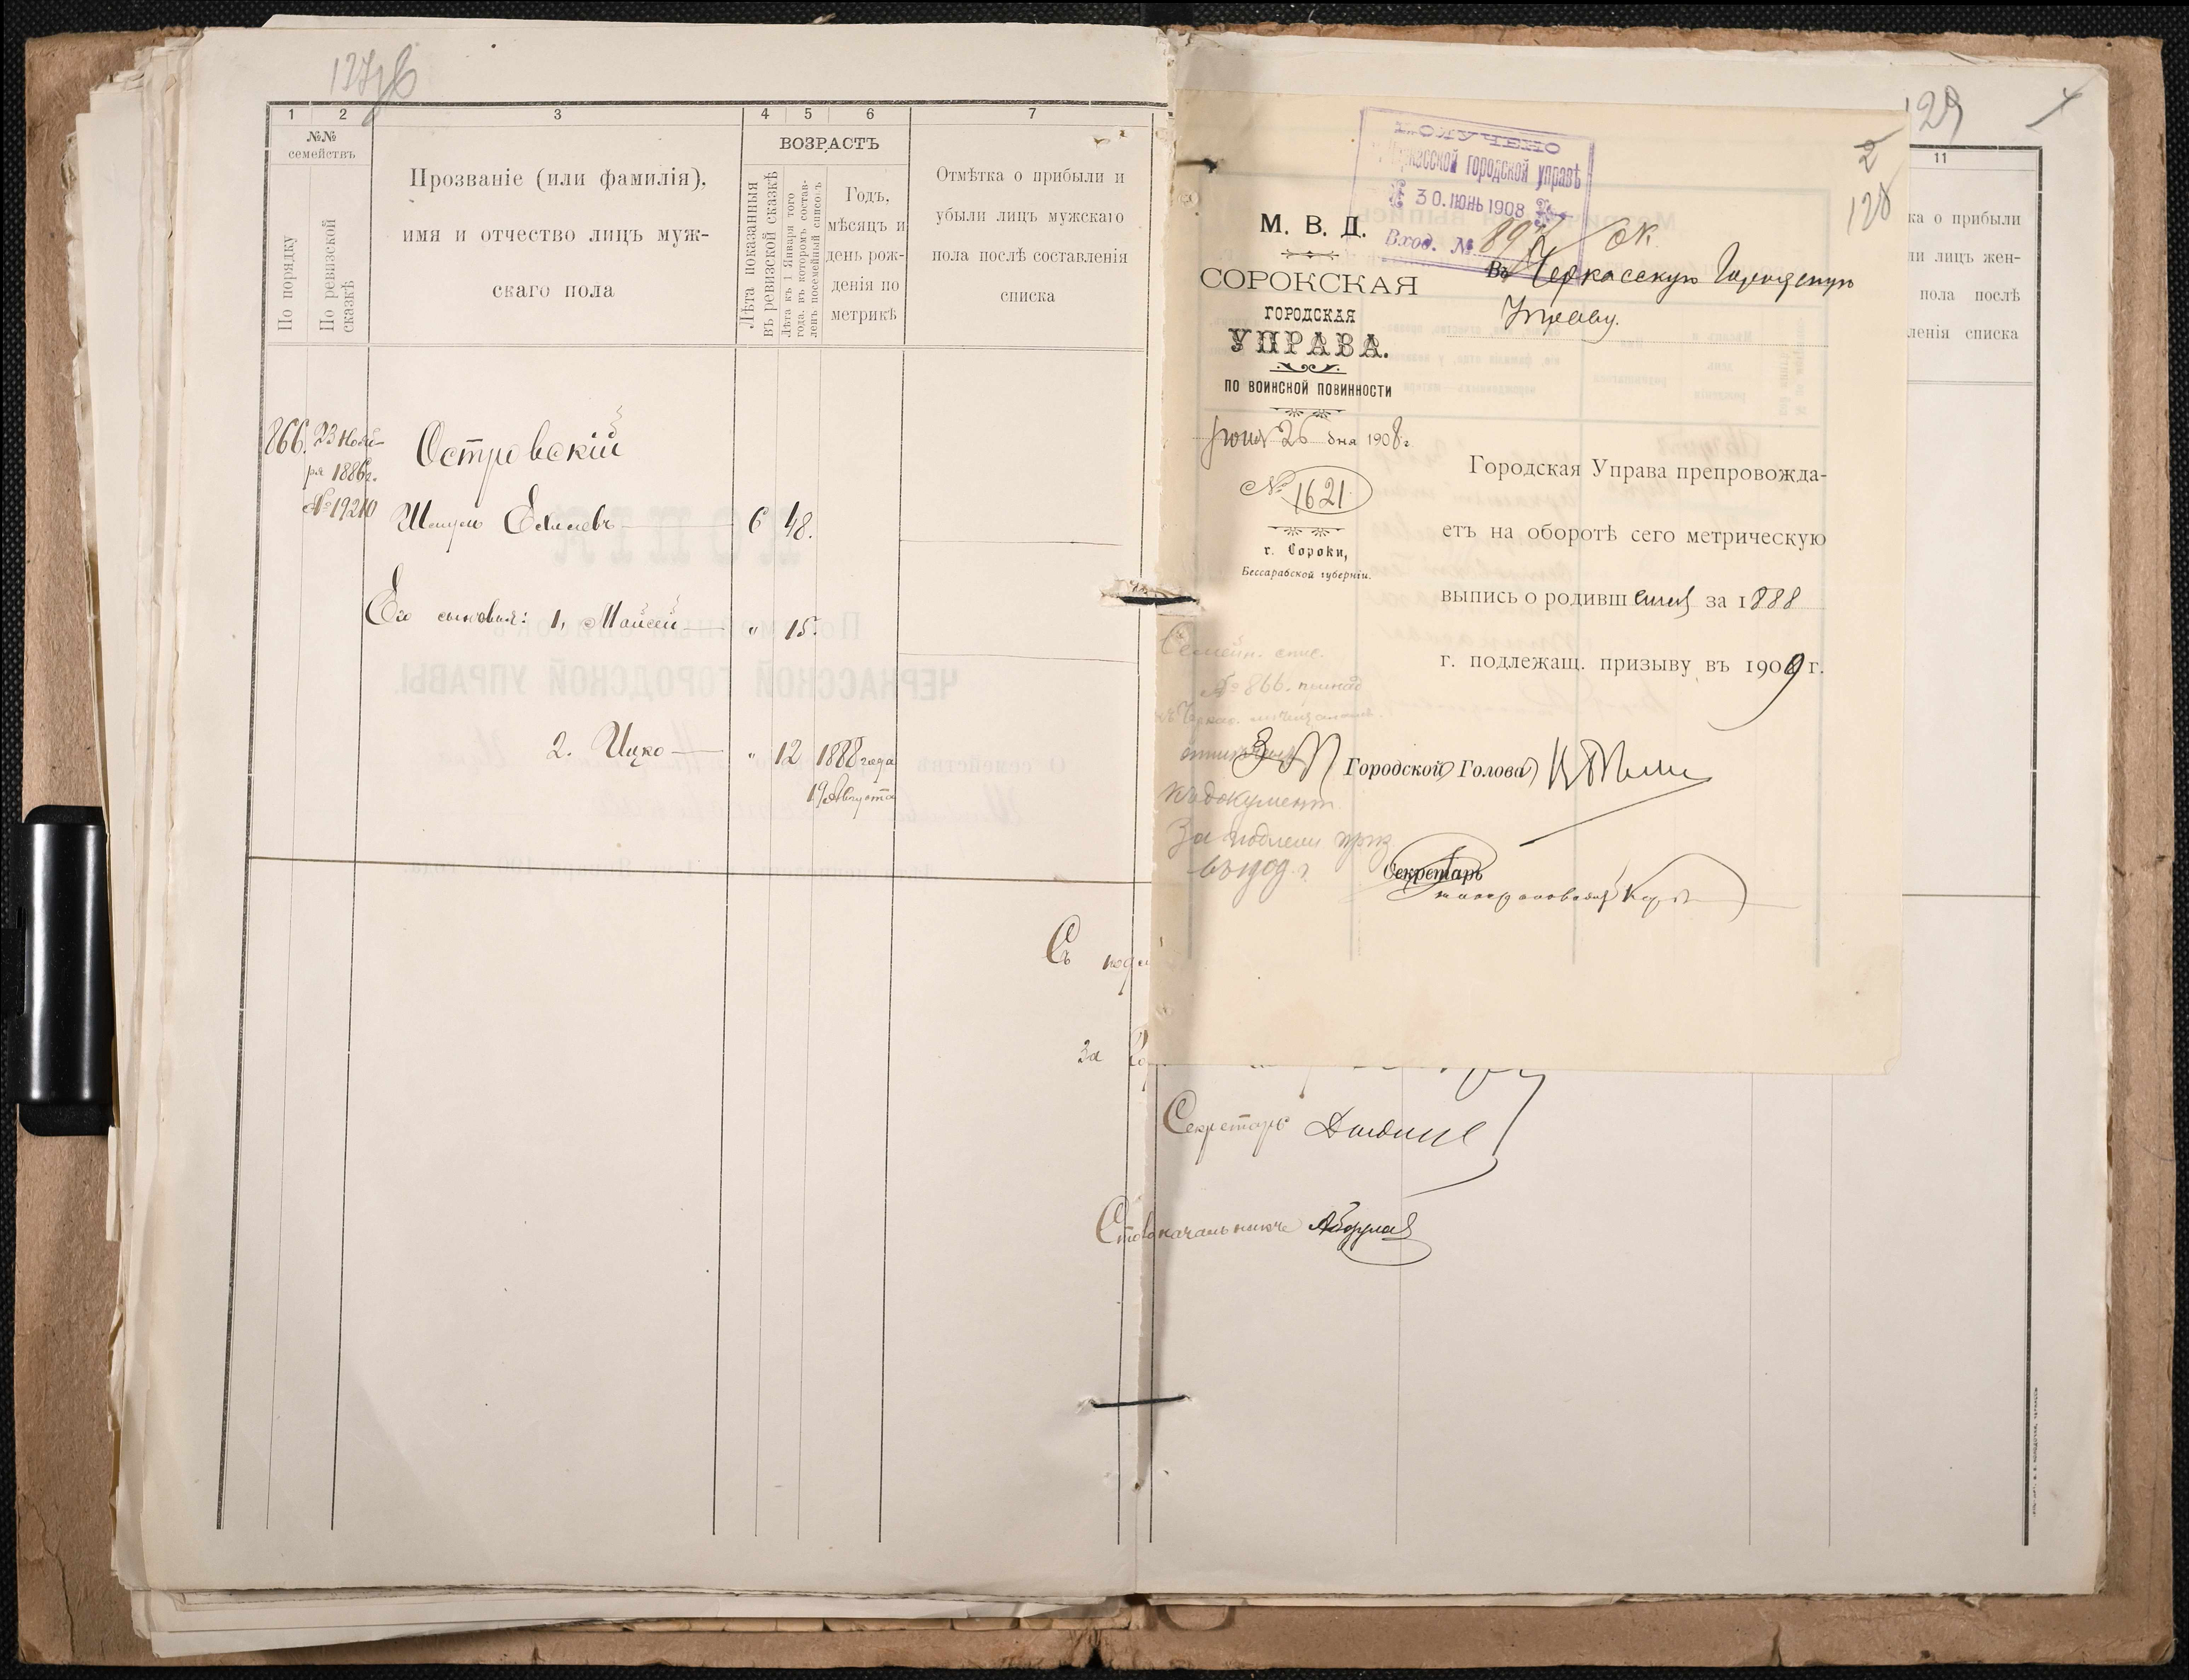 1
2
3
4
5
6
7
№№
семействъ
По порядку
По ревизской
сказкѣ
Прозваніе (или фамилія),
имя и отчество лицъ муж-
скаго пола
ВОЗРАСТЪ
Лѣта показанныя
въ ревизской сказкѣ
Лѣта къ 1 Января того
года, въ которомъ состав-
ленъ посемейный списокъ
Годъ,
мѣсяцъ и
день рож-
денія по
метрикѣ
Отмѣтка о прибыли и
убыли лицъ мужскаго
пола послѣ составленія
списка
866. 23 Нояб-
ря 1886 г.
№ 19210
Островскій
Шмуль 6 48.
Его сыновья: 1, Мойсей " 15.
2. Ицко " 12 1888 года
19 Августа
Съ
За
Секретарь
Столоначальникъ
129
11
ка о прибыли
ли лицъ жен-
пола послѣ
ленія списка
2
128
ПОЛУЧЕНО
Черкасской городской управѣ
30. ІЮНЬ 1908
Вход. №
М. В. Д.
СОРОКСКАЯ
ГОРОДСКАЯ
УПРАВА.
ПО ВОИНСКОЙ ПОВИННОСТИ
Іюня 26 дня 1908 г.
№ 1621
г. Сороки,
Бессарабской губерніи.
Въ Черкасскую Городскую
Управу.
Городская Управа препровожда-
етъ на оборотѣ сего метрическую
выпись о родившемся за 1888
г. подлежащ. призыву въ 1909 г.
Семейн. спис.
№ 866.
къ документ.
въ 1909 г.
Городской Голова
Секретарь